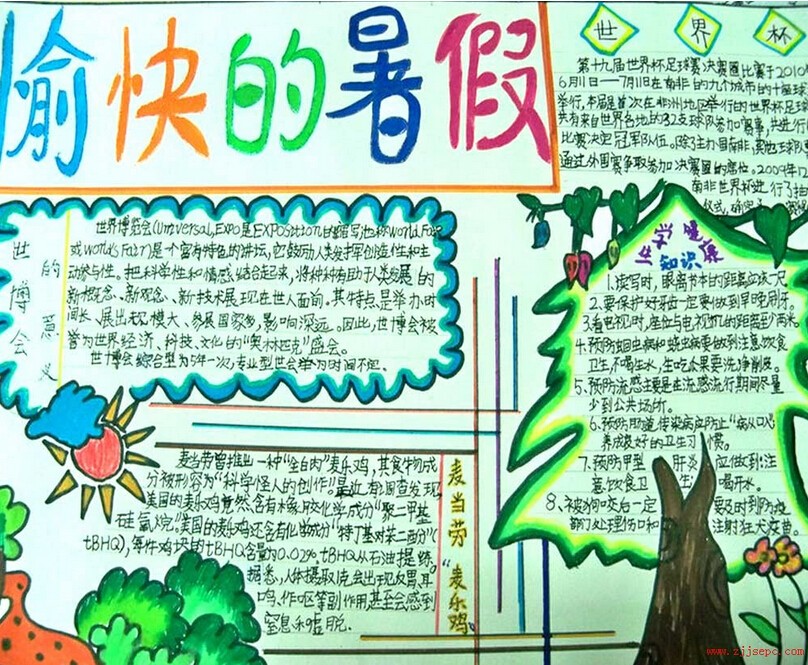 愉快的暑假
世界杯
第十九届世界杯足球赛决赛圈比赛于2010
6月11日——7月11日在南非的九个城市的十座球
举行,本届是首次在非洲地区举行的世界杯足球
共有来自世界各地的32支球队参加赛事,共进行
比赛决定冠军队伍。除了主办国南非,其他球队
通过外围赛争取参加决赛圈的席位。2009年12
南非世界杯进行了抽
仪式,确定了
世博会
的意义
世界博览会(Universal,Expo是Exposition的缩写;也称World Fair
或World's Fair)是个富有特色的讲坛,它鼓励人类发挥创造性和主
动参与性。把科学性和情感结合起来,将种种有助于人类发展的
新概念、新观念、新技术展现在世人面前。其特点是举办时
间长、展出规模大、参展国家多,影响深远。因此,世博会被
誉为世界经济、科技、文化的“奥林匹克”盛会。
世博会综合型为5年一次,专业型世会举为时间不定。
健康
知识
1.读写时,眼离书本的距离应该一尺
2.要保护好牙齿一定要做到早晚刷牙。
3.看电视时,座位与电视机的距离至少两米
4.预防蛔虫病和蛲虫病要做到注意饮食
卫生,不喝生水,生吃瓜果要洗净削皮。
5、预防流感主要是在流感流行期间尽量
少到公共场所。
6、预防肠道传染病应防止“病从口入
养成良好的卫生习惯。
7、预防甲型肝炎应做到:注
意饮食卫生喝开水。
8、被狗咬后一定要及时到防疫
部门处理伤口和注射狂犬疫苗。
麦当劳曾推出一种“全白肉”麦乐鸡,其食物成
分被形容为“科学怪人的创作”。最近有调查发现,
美国的麦乐鸡竟然含有橡胶化学成分“聚二甲基
硅氧烷”。美国的麦乐鸡还含有化学成分“特丁基对苯二酚”(
tBHQ),每件鸡块的tBHQ含量为0.02%,tBHQ从石油提炼。
据悉,人体摄取1克,会出现反胃、耳
鸣、作呕等副作用,甚至会感到
窒息和虚脱。
麦当劳“麦乐鸡
www.zjjsepc.com